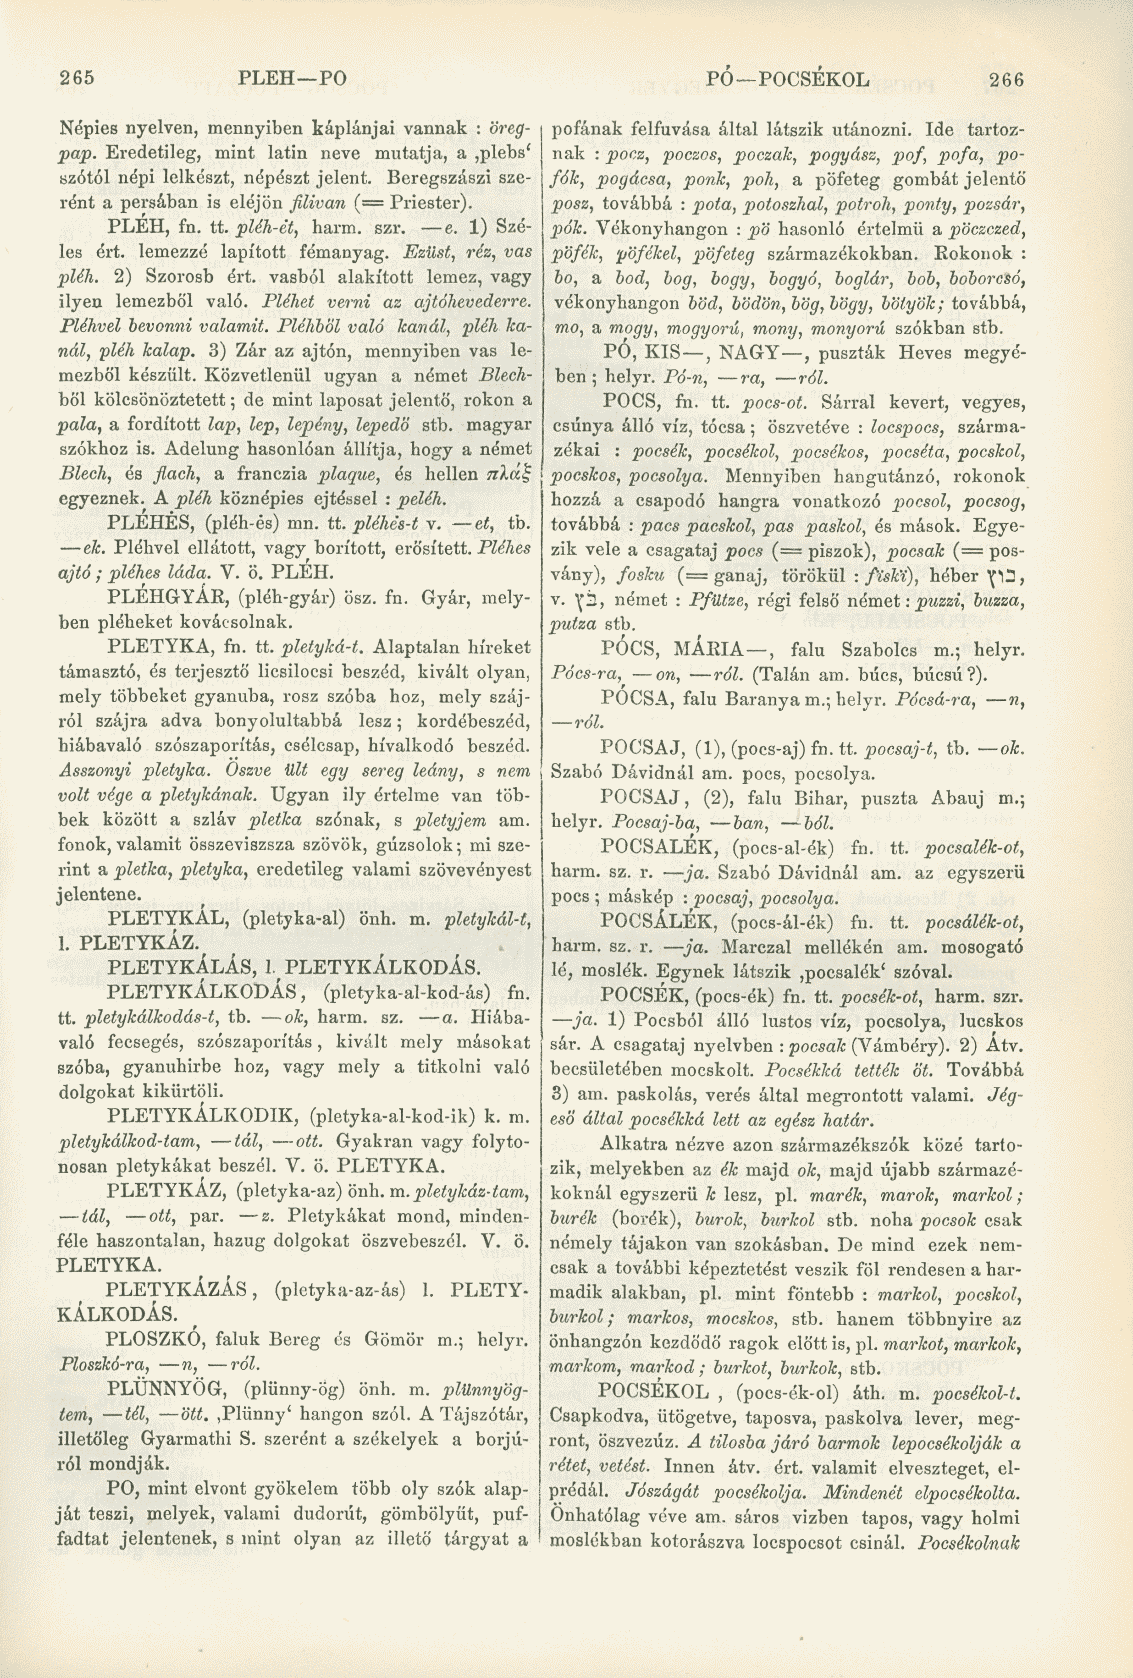 265 PLEH—PO
Népies nyelven, mennyiben káplánjai vannak : öreg-
pap. Eredetileg, mint latin neve mutatja, a ‚plebs‘
szótól népi lelkészt, népészt jelent. Beregszászi sze-
rént a persában is eléjön filivan (= Priester).
PLÉH, fn. tt. pléh-ét, harm. szr. —e. 1) Szé-
les ért. lemezzé lapított fémanyag. Ezüst, réz, vas
pléh. 2) Szorosb ért. vasból alakított lemez, vagy
ilyen lemezből való. Pléhet verni az ajtóhevederre.
Pléhvel bevonni valamit. Pléhből való kanál, pléh ka-
nál, pléh kalap. 3) Zár az ajtón, mennyiben vas le-
mezből készült. Közvetlenül ugyan a német Blech-
ből kölcsönöztetett; de mint laposat jelentő, rokon a
pala, a fordított lap, lep, lepény, lepedő stb. magyar
szókhoz is. Adelung hasonlóan állítja, hogy a német
Blech, és flach, a franczia plaque, és hellen πλάξ
egyeznek. A pléh köznépies ejtéssel : peléh.
PLÉHÉS, (pléh-és) mn. tt. pléhés-t v. —et, tb.
—ek. Pléhvel ellátott, vagy borított, erősített. Pléhes
ajtó; pléhes láda. V. ö. PLÉH.
PLÉHGYÁR, (pléh-gyár) ösz. fn. Gyár, mely-
ben pléheket kovácsolnak.
PLETYKA, fn. tt. pletyká-t. Alaptalan híreket
támasztó, és terjesztő licsilocsi beszéd, kivált olyan,
mely többeket gyanuba, rosz szóba hoz, mely száj-
ról szájra adva bonyolultabbá lesz; kordébeszéd,
hiábavaló szószaporítás, csélcsap, hívalkodó beszéd.
Asszonyi pletyka. Öszve ült egy sereg leány, s nem
volt vége a pletykának. Ugyan ily értelme van töb-
bek között a szláv pletka szónak, s pletyjem am.
fonok, valamit összeviszsza szövök, gúzsolok; mi sze-
rint a pletka, pletyka, eredetileg valami szövevényest
jelentene.
PLETYKÁL, (pletyka-al) önh. m. pletykál-t,
l. PLETYKÁZ.
PLETYKÁLÁS, l. PLETYKÁLKODÁS.
PLETYKÁLKODÁS, (pletyka-al-kod-ás) fn.
tt. pletykálkodás-t, tb. —ok, harm. sz. —a. Hiába-
való fecsegés, szószaporítás, kivált mely másokat
szóba, gyanuhirbe hoz, vagy mely a titkolni való
dolgokat kikürtöli.
PLETYKÁLKODIK, (pletyka-al-kod-ik) k. m.
pletykálkod-tam, —tál, —ott. Gyakran vagy folyto-
nosan pletykákat beszél. V. ö. PLETYKA.
PLETYKÁZ, (pletyka-az) önh. m. pletykáz-tam,
—tál, —ott, par. —z. Pletykákat mond, minden-
féle haszontalan, hazug dolgokat öszvebeszél. V. ö.
PLETYKA.
PLETYKÁZÁS, (pletyka-az-ás) l. PLETY-
KÁLKODÁS.
PLOSZKÓ, faluk Bereg és Gömör m.; helyr.
Ploszkó-ra, —n, —ról.
PLÜNNYÖG, (plünny-ög) önh. m. plünnyög-
tem, —tél, —ött. ‚Plünny‘ hangon szól. A Tájszótár,
illetőleg Gyarmathi S. szerént a székelyek a borjú-
ról mondják.
PO, mint elvont gyökelem több oly szók alap-
ját teszi, melyek, valami dudorút, gömbölyűt, puf-
fadtat jelentenek, s mint olyan az illető tárgyat a
PÓ—POCSÉKOL 266
pofának felfuvása által látszik utánozni. Ide tartoz-
nak : pocz, poczos, poczak, pogyász, pof, pofa, po-
fók, pogácsa, ponk, poh, a pöfeteg gombát jelentő
posz, továbbá : pota, potoszhal, potroh, ponty, pozsár,
pók. Vékonyhangon : pö hasonló értelmű a pöczczed,
pöfék, pöfékel, pöfeteg származékokban. Rokonok :
bo, a bod, bog, bogy, bogyó, boglár, bob, boborcsó,
vékonyhangon böd, bödön, bög, bögy, bötyök; továbbá,
mo, a mogy, mogyorú, mony, monyorú szókban stb.
PÓ, KIS—, NAGY—, puszták Heves megyé-
ben; helyr. Pó-n, —ra, —ról.
POCS, fn. tt. pocs-ot. Sárral kevert, vegyes,
csúnya álló víz, tócsa; öszvetéve : locspocs, szárma-
zékai : pocsék, pocsékol, pocsékos, pocséta, pocskol,
pocskos, pocsolya. Mennyiben hangutánzó, rokonok
hozzá a csapodó hangra vonatkozó pocsol, pocsog,
továbbá : pacs pacskol, pas paskol, és mások. Egye-
zik vele a csagataj pocs (= piszok), pocsak (= pos-
vány), fosku (= ganaj, törökül : fiski), héber בוץ,
v. בץ, német : Pfütze, régi felső német : puzzi, buzza,
putza stb.
PÓCS, MÁRIA—, falu Szabolcs m.; helyr.
Pócs-ra, —on, —ról. (Talán am. búcs, búcsú?).
PÓCSA, falu Baranya m.; helyr. Pócsá-ra, —n,
—ról.
POCSAJ, (1), (pocs-aj) fn. tt. pocsaj-t, tb. —ok.
Szabó Dávidnál am. pocs, pocsolya.
POCSAJ, (2), falu Bihar, puszta Abauj m.;
helyr. Pocsaj-ba, —ban, —ból.
POCSALÉK, (pocs-al-ék) fn. tt. pocsalék-ot,
harm. sz. r. —ja. Szabó Dávidnál am. az egyszerű
pocs; máskép : pocsaj, pocsolya.
POCSÁLÉK, (pocs-ál-ék) fn. tt. pocsálék-ot,
harm. sz. r. —ja. Marczal mellékén am. mosogató
lé, moslék. Egynek látszik ‚pocsalék‘ szóval.
POCSÉK, (pocs-ék) fn. tt. pocsék-ot, harm. szr.
—ja. 1) Pocsból álló lustos víz, pocsolya, lucskos
sár. A csagataj nyelvben : pocsak (Vámbéry). 2) Átv.
becsületében mocskolt. Pocsékká tették őt. Továbbá
3) am. paskolás, verés által megrontott valami. Jég-
eső által pocsékká lett az egész határ.
Alkatra nézve azon származékszók közé tarto-
zik, melyekben az ék majd ok, majd újabb származé-
koknál egyszerű k lesz, pl. marék, marok, markol;
burék (borék), burok, burkol stb. noha pocsok csak
némely tájakon van szokásban. De mind ezek nem-
csak a további képeztetést veszik föl rendesen a har-
madik alakban, pl. mint föntebb : markol, pocskol,
burkol; markos, mocskos, stb. hanem többnyire az
önhangzón kezdődő ragok előtt is, pl. markot, markok,
markom, markod; burkot, burkok, stb.
POCSÉKOL, (pocs-ék-ol) áth. m. pocsékol-t.
Csapkodva, ütögetve, taposva, paskolva lever, meg-
ront, öszvezúz. A tilosba járó barmok lepocsékolják a
rétet, vetést. Innen átv. ért. valamit elveszteget, el-
prédál. Jószágát pocsékolja. Mindenét elpocsékolta.
Önhatólag véve am. sáros vizben tapos, vagy holmi
moslékban kotorászva locspocsot csinál. Pocsékolnak